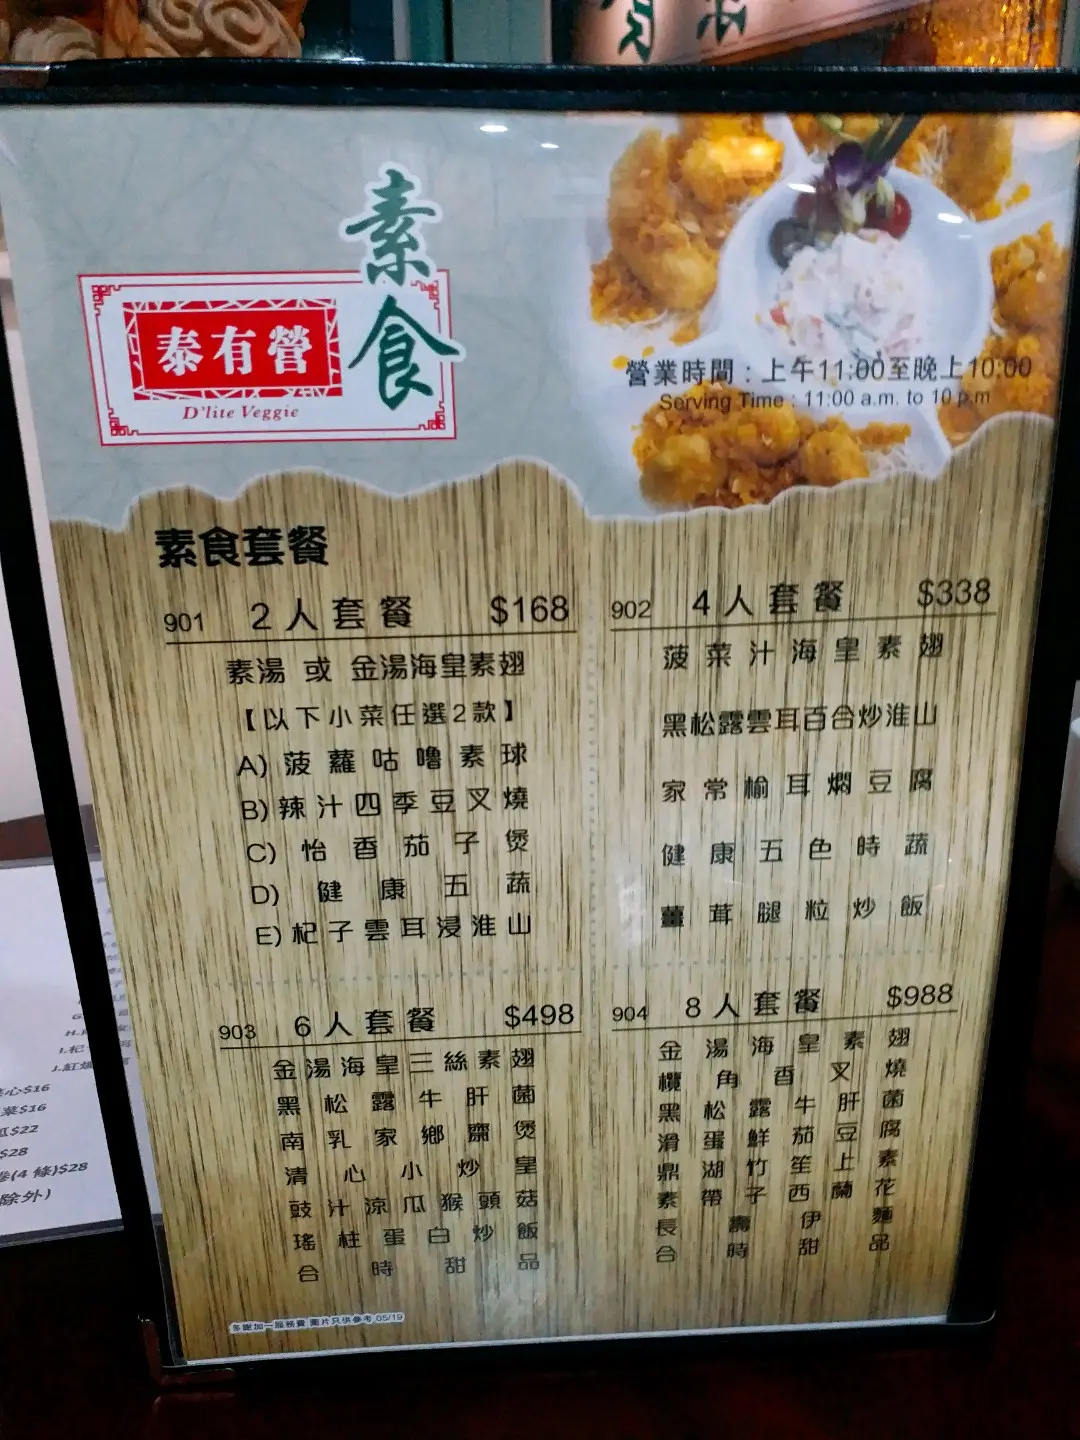 素食
泰有營
D'lite Veggie
營業時間：上午11:00至晚上10:00
Serving Time : 11:00 a.m. to 10 p.m
素食套餐
901 2人套餐 $168
素湯 或 金湯海皇素翅
【以下小菜任選2款】
A) 菠蘿咕嚕素球
B) 辣汁四季豆叉燒
C) 怡香茄子煲
D) 健康五蔬
E) 杞子雲耳浸淮山
902 4人套餐 $338
菠菜汁海皇素翅
黑松露雲耳百合炒淮山
家常榆耳燜豆腐
健康五色時蔬
薑茸腿粒炒飯
903 6人套餐 $498
金湯海皇三絲素翅
黑松露牛肝菌
南乳家鄉齋煲
清心小炒皇
豉汁涼瓜猴頭菇
瑤柱蛋白炒飯
合時甜品
904 8人套餐 $988
金湯海皇素翅
欖角香叉燒
黑松露牛肝菌
滑蛋鮮茄豆腐
鼎湖竹笙上素
素帶子西蘭花
長壽伊麵
合時甜品
多謝加一服務費 圖片只供參考 05/19
心$16
菜$16
瓜$22
$28
卷(4 條)$28
除外)